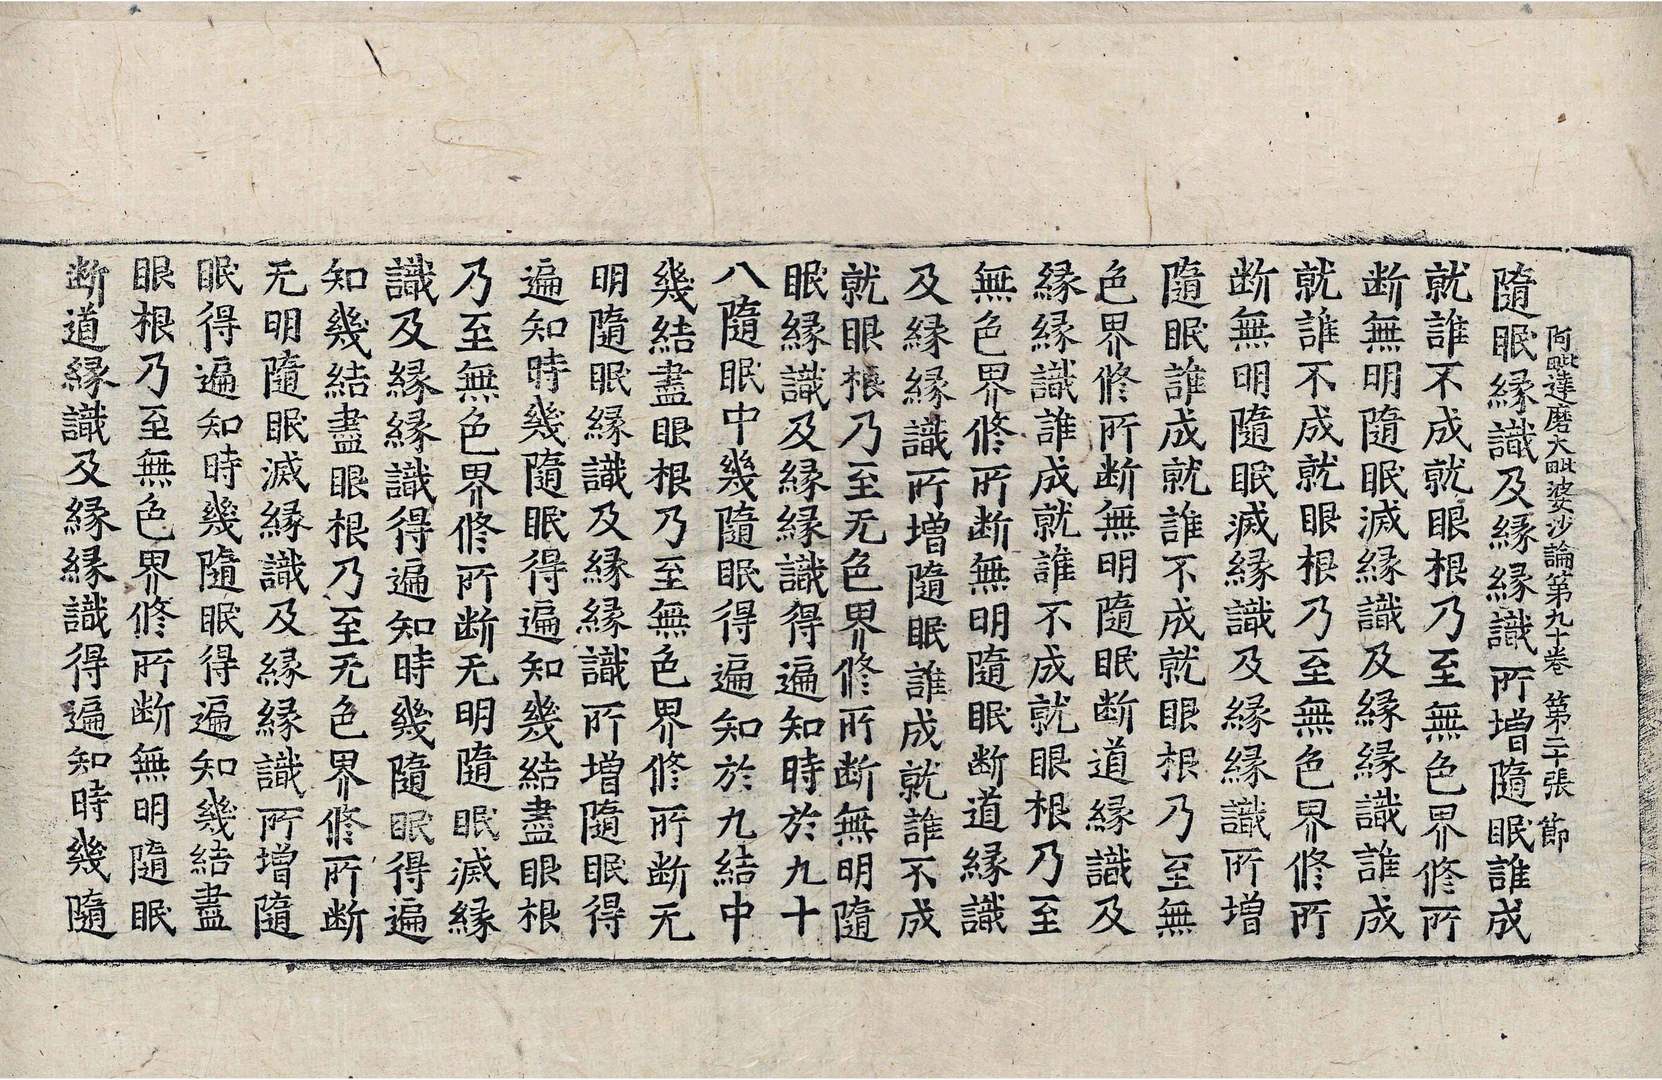 阿毗達磨大毗婆沙論第九十卷 第二十張 節
隨眠縁識及縁縁識所增隨眠誰成
就誰不成就眼根乃至無色界修所
断無明隨眠滅縁識及縁縁識誰成
就誰不成就眼根乃至無色界修所
断無明隨眠滅縁識及縁縁識所增
隨眠誰成就誰不成就眼根乃至無
色界修所断無明隨眠断道縁識及
縁縁識誰成就誰不成就眼根乃至
無色界修所断無明隨眠断道縁識
及縁縁識所增隨眠誰成就誰不成
就眼根乃至无色界修所断無明隨
眠縁識及縁縁識得遍知時於九十
八隨眠中幾隨眠得遍知於九結中
幾結盡眼根乃至無色界修所断无
明隨眠縁識及縁縁識所增隨眠得
遍知時幾隨眠得遍知幾結盡眼根
乃至無色界修所断无明隨眠滅縁
識及縁縁識得遍知時幾隨眠得遍
知幾結盡眼根乃至无色界修所断
无明隨眠滅縁識及縁縁識所增隨
眠得遍知時幾隨眠得遍知幾結盡
眼根乃至無色界修所断無明隨眠
断道縁識及縁縁識得遍知時幾隨